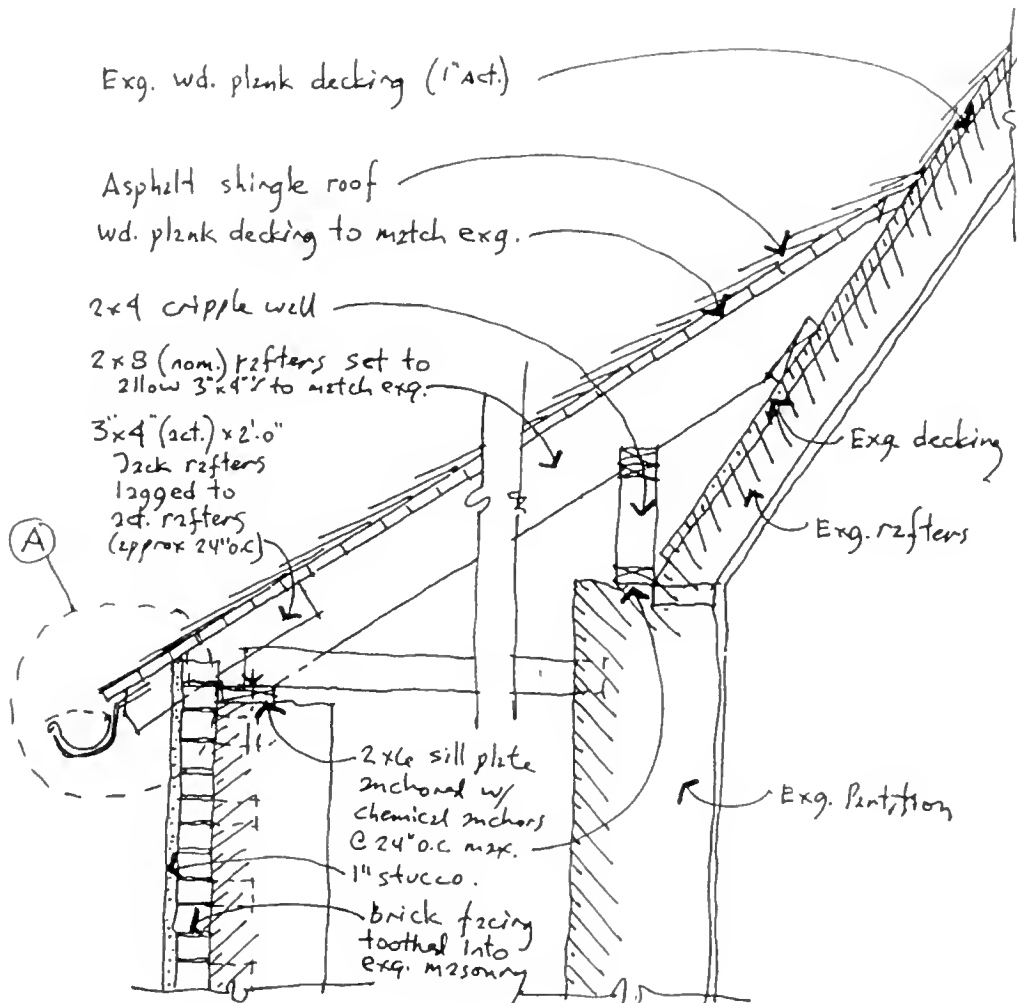 Exg. wd. plank decking (1" Act.)
Asphalt shingle roof
wd. plank decking to match exg.
2x4 cripple wall
2x8 (nom.) rafters set to
allow 3"x4"'s to match exg.
3"x4" (act.) x 2'-0"
Jack rafters
lagged to
act. rafters
(approx 24" o.c.)
A
Exg. decking
Exg. rafters
2x6 sill plate
anchored w/
chemical anchors
@ 24" o.c. max.
Exg. Partition
1" stucco.
brick facing
toothed into
exg. masonry